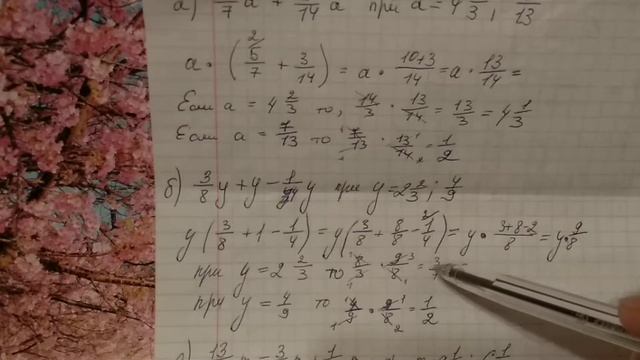 а) /7 a + /14 a при a = 4 /3; /13
a · (5/7 + 3/14) = a · 10+3/14 = a · 13/14 =
Если a = 4 2/3 то, 14/3 · 13/14 = 13/3 = 4 1/3
Если a = 7/13 то 7/13 · 13/14 = 1/2
б) 3/8 y + y - 1/4 y при y = 2 2/3; 4/9
y (3/8 + 1 - 1/4) = y (3/8 + 8/8 - 1/4) = y · 3+8-2/8 = y · 9/8
при y = 2 2/3 то 8/3 · 9/8 = 3/1
при y = 4/9 то 4/9 · 9/8 = 1/2